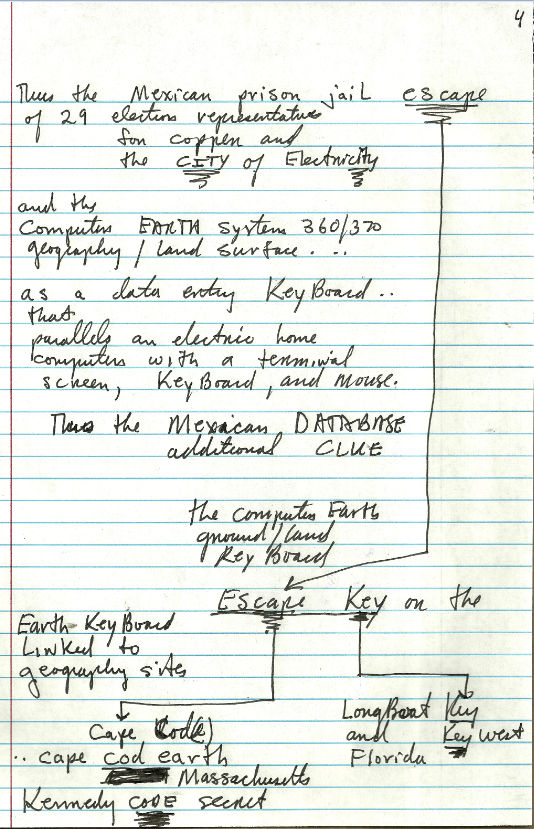 4
Thus the Mexican prison jail escape
of 29 election representatives
for copper and
the CITY of Electricity
and the
Computer EARTH system 360/370
geography / land surface. ...
as a data entry KeyBoard ..
that
parallels an electric home
computer with a terminal
screen, KeyBoard, and mouse.
Thus the Mexican DATABASE
additional CLUE
the computer Earth
ground/land
Key Board
Escape Key on the
Earth KeyBoard
Linked to
geography sites
Cape Cod(e)
.. cape cod earth
Massachusetts
Kennedy CODE secret
LongBoat Key
and Key west
Florida